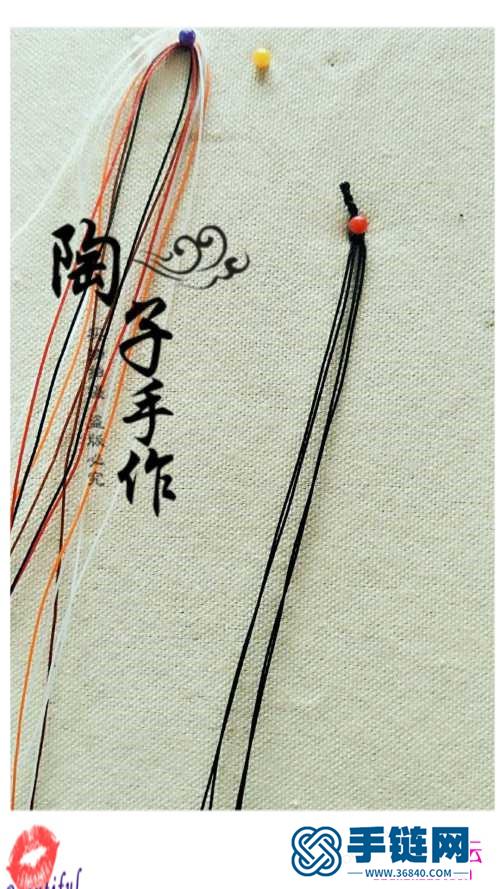 陶
子
手
作
盗版必究
手链网
WWW.36840.COM
云